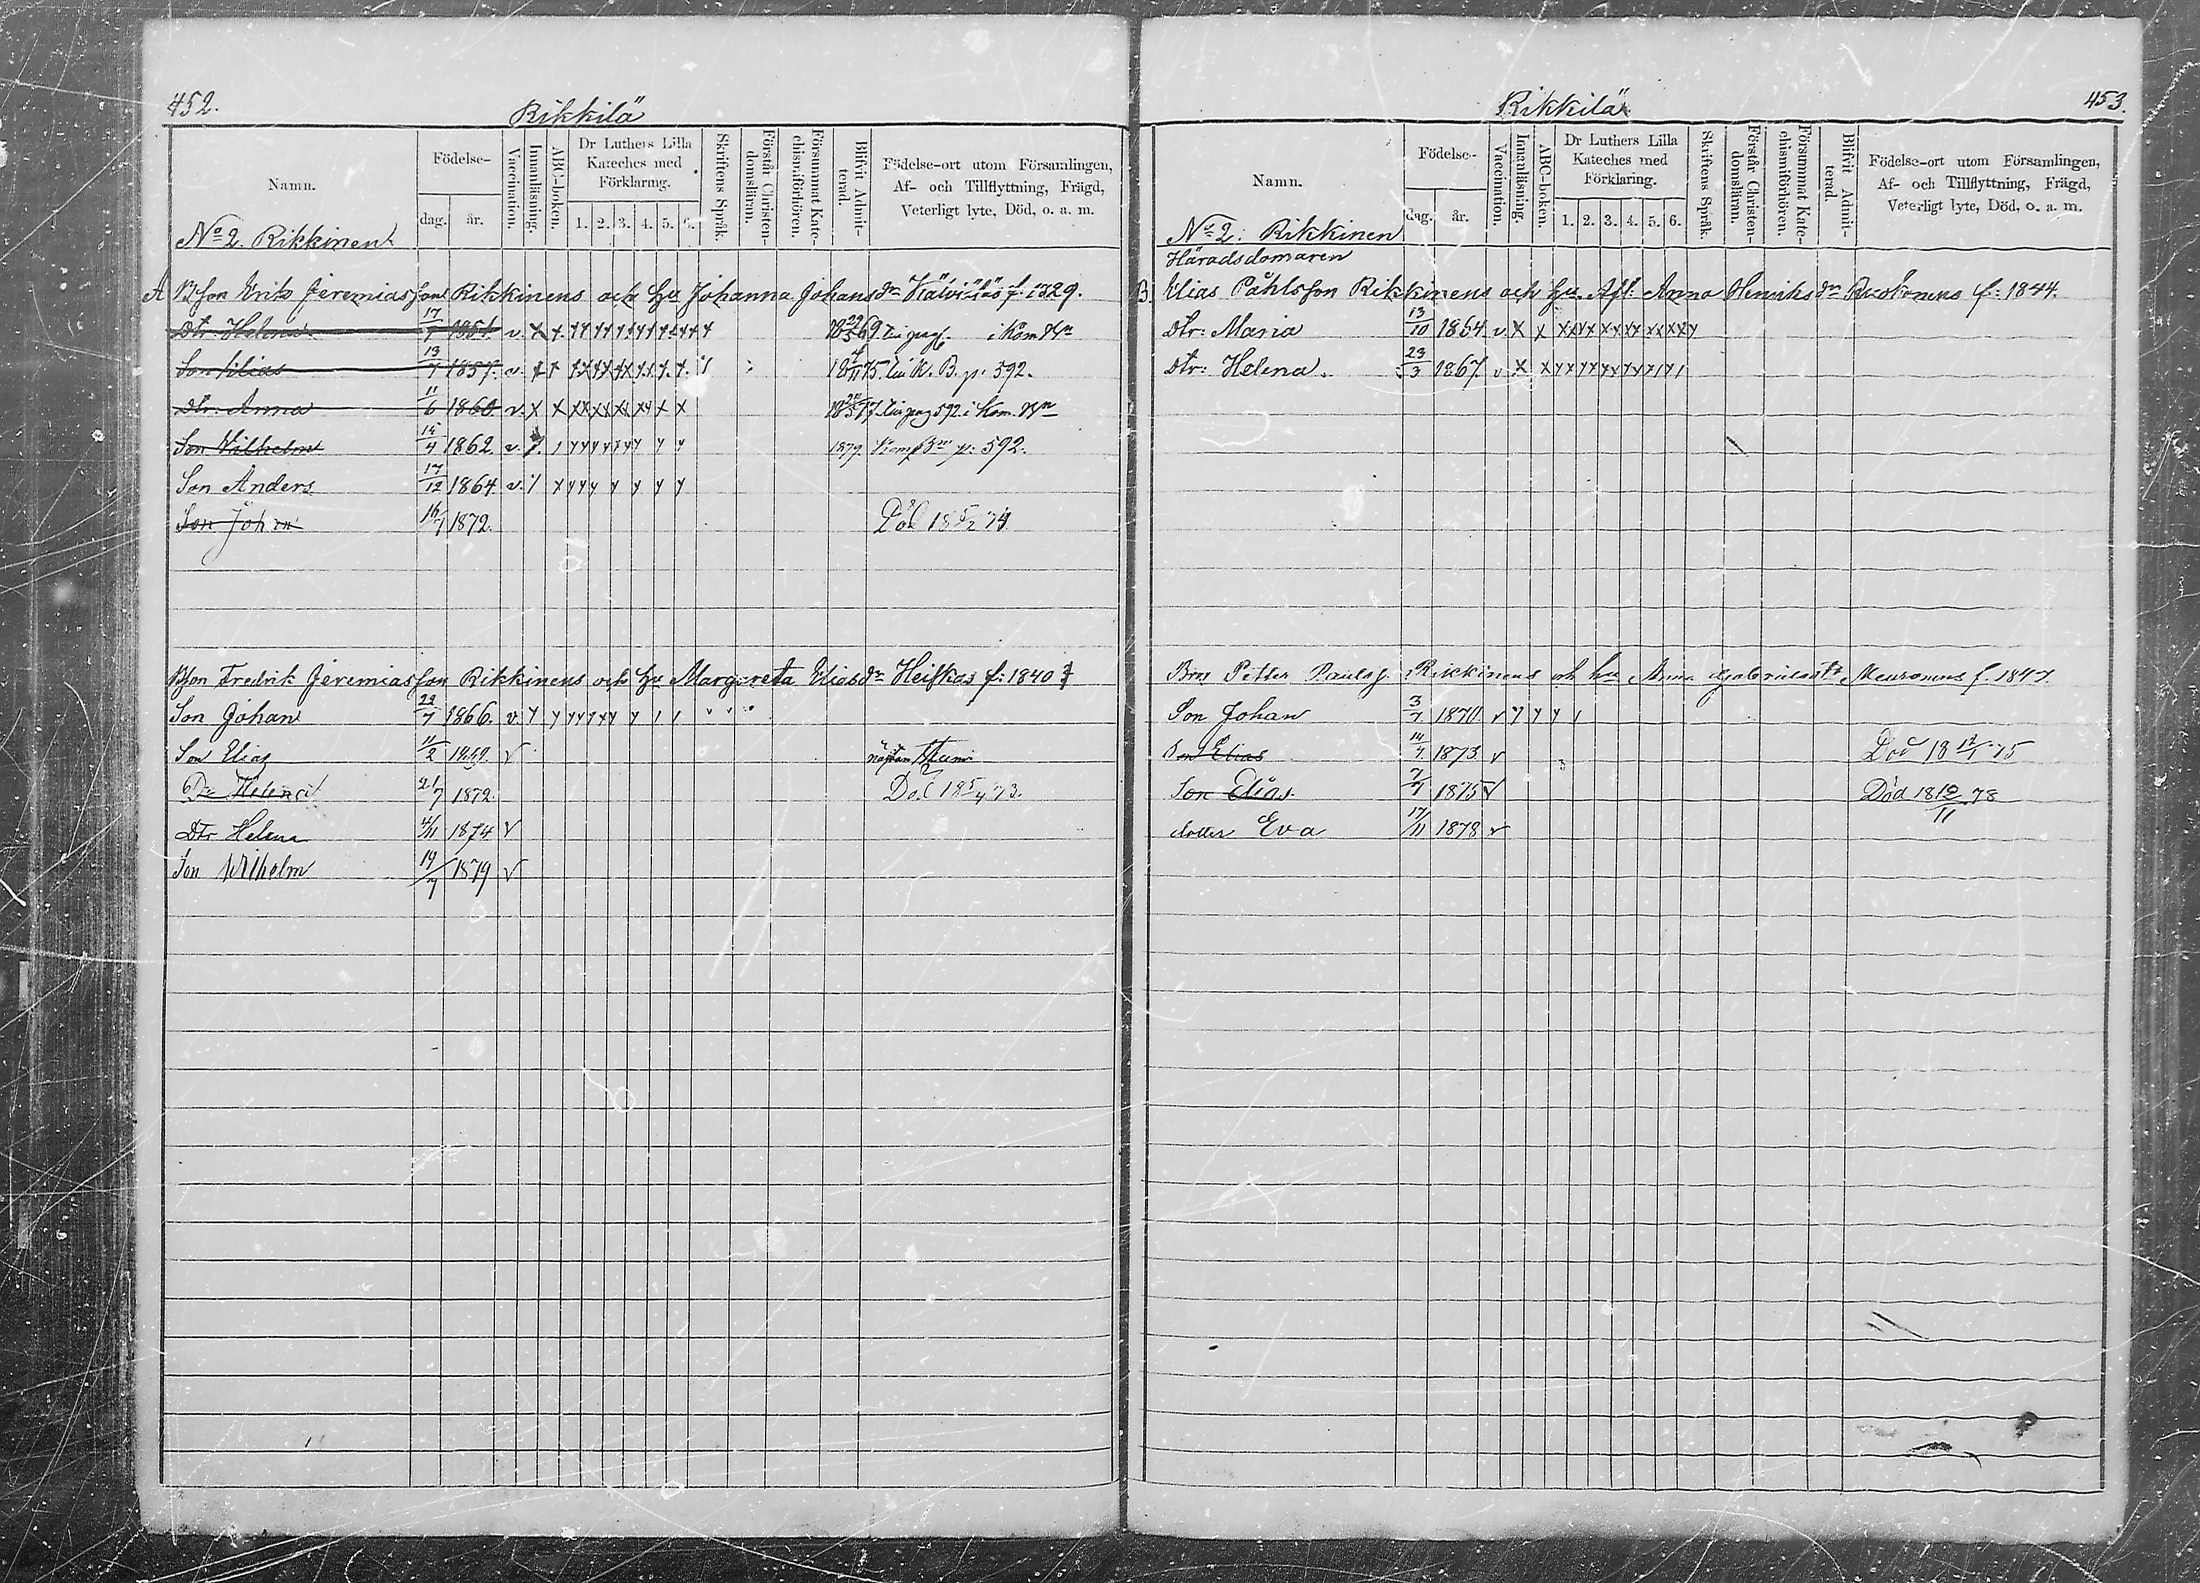 452.
Rikkilä
Namn.
Födelse-
dag. år.
Vaccination.
Innanläsning.
ABC-boken.
Dr Luthers Lilla
Kateches med
Förklaring.
1. 2. 3. 4. 5. 6.
Skriftens Språk.
Förstår Christen-
domsläran.
Försummat Kate-
chismiförhören.
Blifvit Admit-
terad.
Födelse-ort utom Församlingen,
Af- och Tillflyttning, Frägd,
Veterligt lyte, Död, o. a. m.
No 2. Rikkinen
A Erik Jeremiasson Rikkinens och Hu Johanna Johansdr f. 1829.
Dtr Helena 17/7 1851. v.
Son Elias 13/7 1857. v. K. B. p. 592.
Dtr: Anna 11/6 1860. v. 592 i Kom. Bn
Son Wilhelm 15/4 1862. v. 1879. p. 592.
Son Anders 17/12 1864 v.
Son Johan 16/1 1872. Död
Fredrik Jeremiasson Rikkinens och Hu Margareta Eliasdr Heiskas f. 1840
Son Johan 22/7 1866. v.
Son Elias 11/2 1869. v
Dr Helena 21/7 1872. Död
Dtr Helena 4/11 1874 v
Son Wilhelm 19/7 1879 v
Rikkilä
453.
Namn.
Födelse-
dag. år.
Vaccination.
Innanläsning.
ABC-boken.
Dr Luthers Lilla
Kateches med
Förklaring.
1. 2. 3. 4. 5. 6.
Skriftens Språk.
Förstår Christen-
domsläran.
Försummat Kate-
chismiförhören.
Blifvit Admit-
terad.
Födelse-ort utom Församlingen,
Af- och Tillflyttning, Frägd,
Veterligt lyte, Död, o. a. m.
No 2. Rikkinen
Häradsdomaren
B. Elias Påhlsson Rikkinens och Hu. Afl. Anna Henriksdr f. 1844.
Dtr: Maria 13/10 1864. v.
Dtr: Helena. 23/3 1867. v
Petter Paulss. Rikkinens och hu Anna Meuronens f. 1847.
Son Johan 3/7 1870. v
Son Elias 14/7 1873. v Död 18 12/1 75
Son Elias. 7/7 1875 v Död 18 10/11 78
dotter Eva 17/11 1878 v